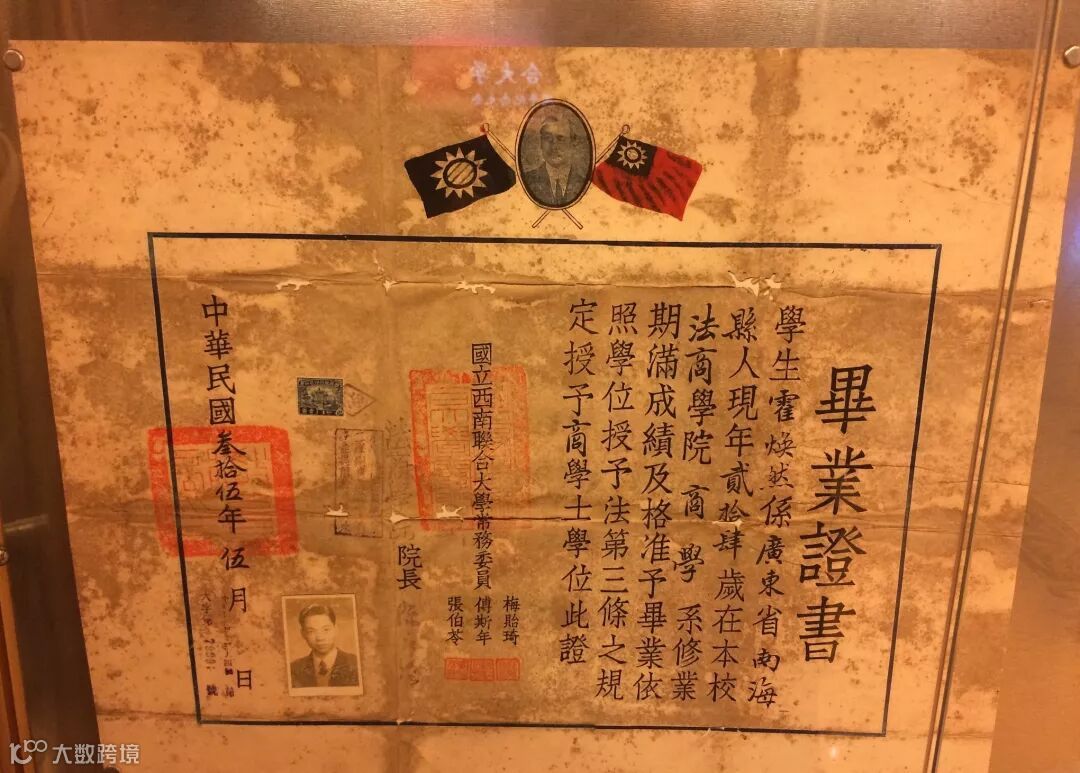 畢業證書
學生霍煥然係廣東省南海
縣人現年貳拾肆歲在本校
法商學院商學系修業
期滿成績及格准予畢業依
照學位授予法第三條之規
定授予商學士學位此證
國立西南聯合大學常務委員
梅貽琦
傅斯年
張伯苓
院長
中華民國叁拾伍年伍月日
大数跨境